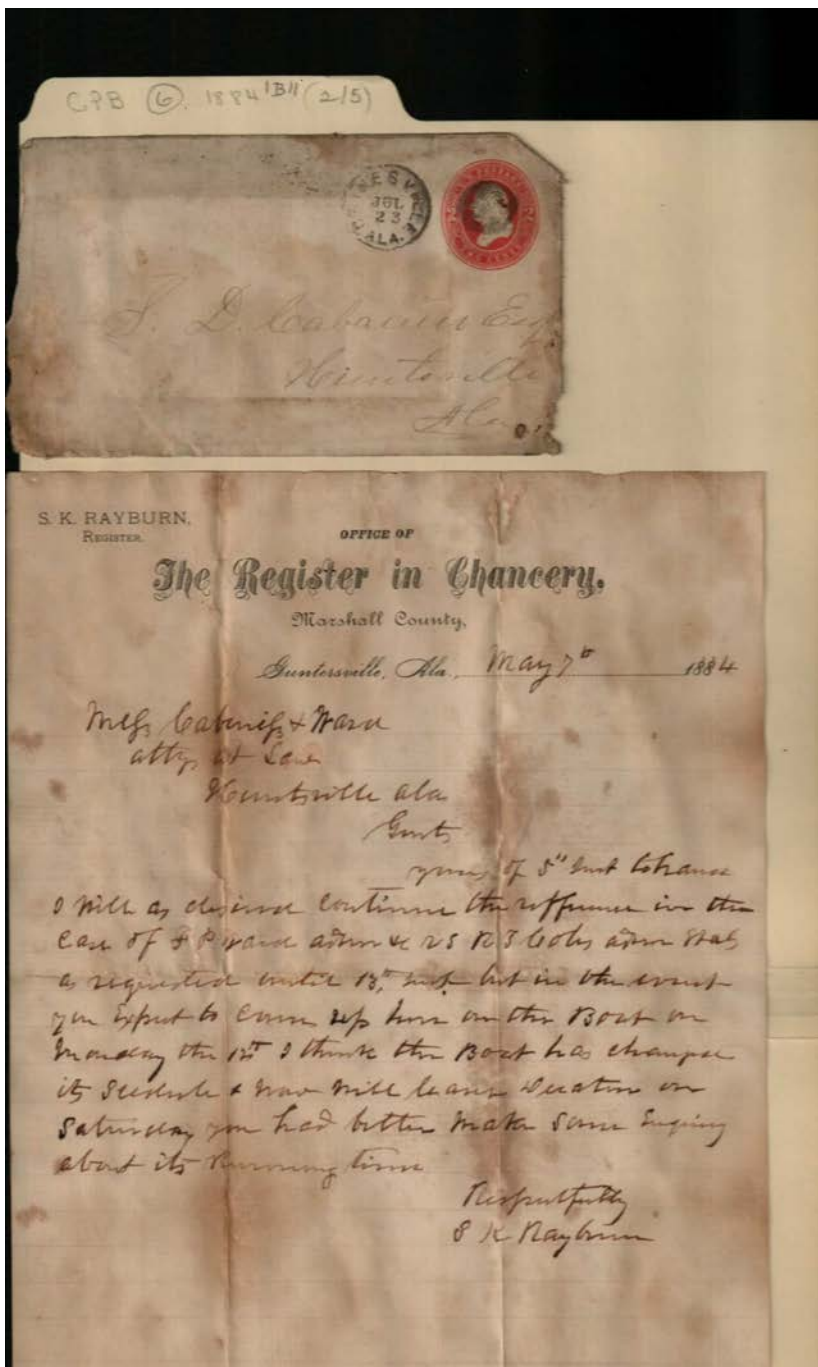 CPB 6 1884 "B" (2/5)
JUL
23
ALA.
U.S. POSTAGE
2 2
TWO CENTS
S. D. Cabaniss Esq
Huntsville
Ala
S. K. RAYBURN,
REGISTER.
OFFICE OF
The Register in Chancery,
Marshall County,
Guntersville, Ala., May 7th 1884
Messrs Cabiniss & Ward
attys at Law
Huntsville Ala
Gents
yours of 5" inst to hand
I will as desired continue the refference in the
case of P Ward admr &c vs R T Coles admr et al
as requested until 13th inst. but in the event
you Expect to come up here on the Boat on
Monday the 12th I think the Boat has changed
its Scedule & now will leave Decatur on
Saturday you had better make some Enquiry
about its Running time
Respectfully
S K Rayburn